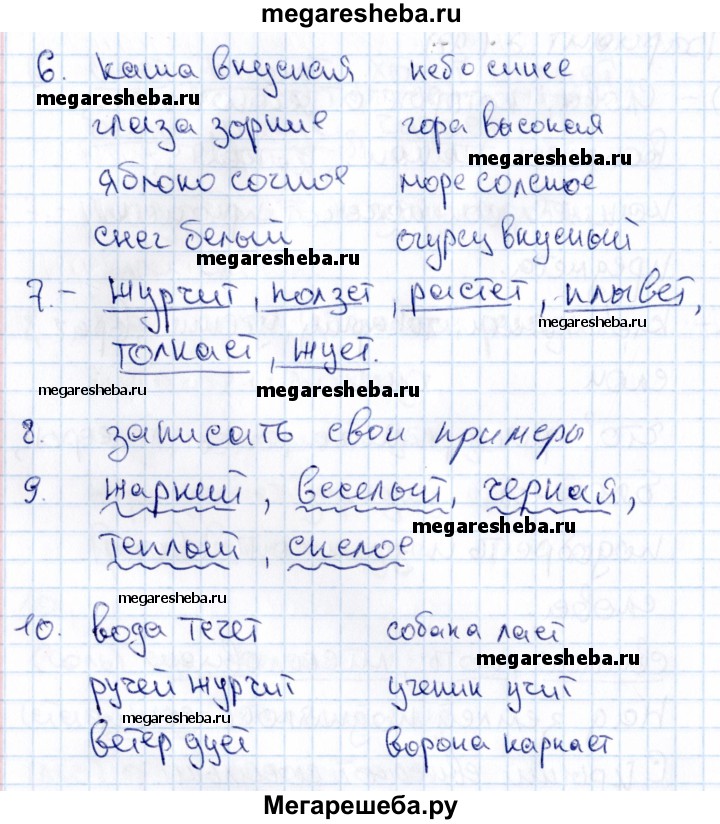 megaresheba.ru
6. каша вкусная небо синее
megaresheba.ru
глаза зоркие гора высокая
megaresheba.ru
яблоко сочное море соленое
снег белый огурец вкусный
megaresheba.ru
7.- журчит, ползет, растет, плывет,
megaresheba.ru
толкает, жует.
megaresheba.ru megaresheba.ru
8. записать свои примеры
9. жаркий, веселый, черная,
megaresheba.ru
теплый, спелое
megaresheba.ru
10. вода течет собака лает
megaresheba.ru
ручей журчит ученик учит
megaresheba.ru
ветер дует ворона каркает
Мегарешеба.ру